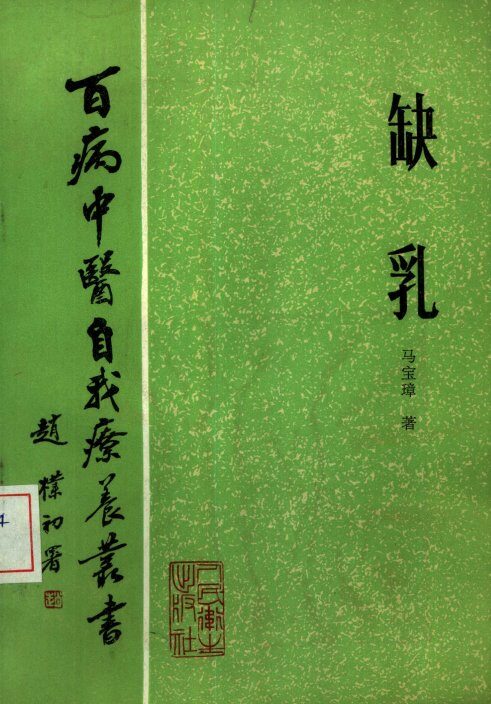 缺乳
马宝璋 著
百病中醫自我療養叢書
趙樸初署
人民衛生出版社
4